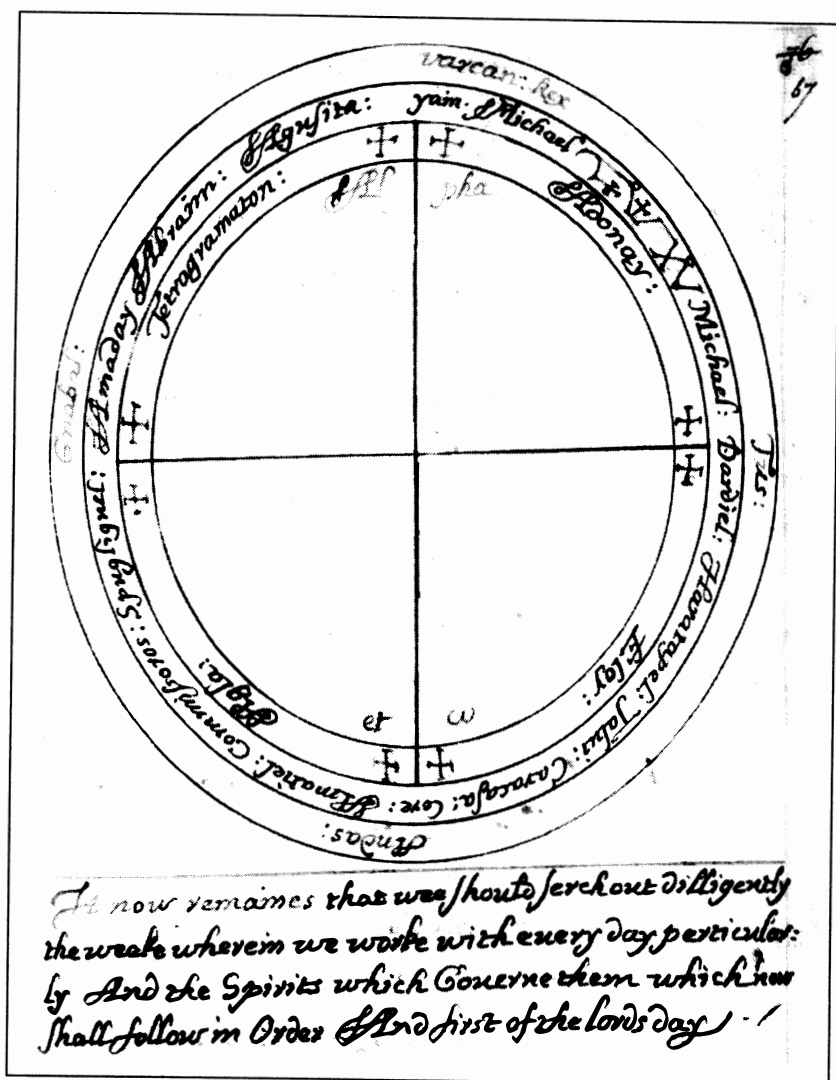 varcan: Rex
Tus:
Andas:
Cynabal:
yain: Michael
Michael: Dardiel: Huratapel: Tabui: Caracasa: Core: Amatiel: Commissoros: Spugliguel: Amaday Abraim: Agusita:
Adonay:
Eloy:
Agla:
Tetragramaton:
Al pha
et ω
67
It now remaines that wee should serch out dilligently
the weeke wherein we worke with euery day perticular:
ly And the Spirits which Gouerne them which now
shall follow in Order And first of the lords day